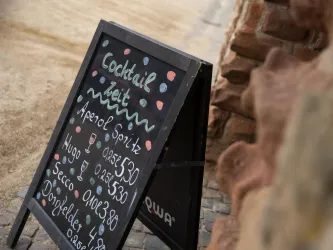 Cocktail
Zeit
Aperol Spritz
0,25l 5,30
Hugo 0,25l 5,30
Secco 0,10l 3,80
Dornfelder
0,25l 4,80
QWA